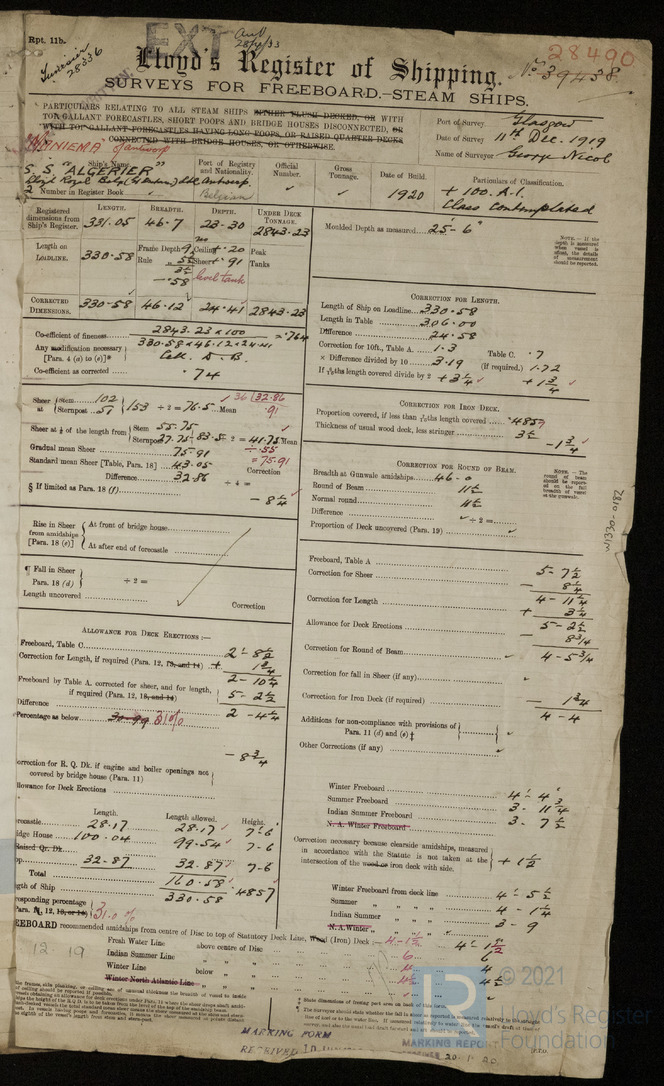 Rpt. 11b.
EXT
28/4/33
28490
No. 39438
28336
Lloyd's Register of Shipping.
SURVEYS FOR FREEBOARD.—STEAM SHIPS.
PARTICULARS RELATING TO ALL STEAM SHIPS EITHER FLUSH DECKED, OR WITH
TOP GALLANT FORECASTLES, SHORT POOPS AND BRIDGE HOUSES DISCONNECTED, OR
WITH TOP GALLANT FORECASTLES HAVING LONG POOPS, OR RAISED QUARTER DECKS
CONNECTED WITH BRIDGE HOUSES, OR OTHERWISE.
Port of Survey Glasgow
Date of Survey 11th Dec. 1919
Name of Surveyor George Nicol
"MANIEMA" of Antwerp
Ship's Name.
Port of Registry and Nationality.
Official Number.
Gross Tonnage.
Date of Build.
Particulars of Classification.
S.S. "ALGERIER"
Antwerp
Belgian
1920
+ 100. A.1.
Class Contemplated
2 Number in Register Book
Registered dimensions from Ship's Register.
LENGTH. BREADTH. DEPTH. UNDER DECK TONNAGE.
331.05 46.7 23.30 2843.23
Length on LOADLINE.
330.58
Frame Depth 9
Rule
.58
Ceiling + .20
Sheer + .91
level tank
Peak Tanks
CORRECTED DIMENSIONS.
330.58 46.12 24.41 2843.23
Co-efficient of fineness 2843.23 x 100 / 330.58 x 46.12 x 24.41 = .764
Any modification necessary [Para. 4 (a) to (e)]* Cell. D.B.
Co-efficient as corrected .74
Sheer at { Stem 102
Sternpost 51 } 153 ÷ 2 = 76.5 Mean
36 | 32.86
.91
Sheer at ⅛ of the length from { Stem 55.75
Sternpost 27.75 83.5 ÷ 2 = 41.75 Mean
÷ .55
Gradual mean Sheer 75.91
= 75.91
Standard mean Sheer [Table, Para. 18] 43.05
Correction
Difference 32.86 ÷ 4 =
§ If limited as Para. 18 (f)
- 8 1/4
Rise in Sheer from amidships [Para. 18 (e)] { At front of bridge house
At after end of forecastle
¶ Fall in Sheer Para. 18 (d) } ÷ 2 =
Length uncovered
Correction
ALLOWANCE FOR DECK ERECTIONS :—
Freeboard, Table C. 2 - 8 1/2
Correction for Length, if required (Para. 12, 13, and 14) + 1 3/4
2 - 10 1/4
Freeboard by Table A. corrected for sheer, and for length, if required (Para. 12, 13, and 14) 5 - 2 1/2
Difference 2 - 4 1/4
Percentage as below 30.99 31%
- 8 3/4
Correction for R. Q. Dk. if engine and boiler openings not covered by bridge house (Para. 11)
Allowance for Deck Erections
Length. Length allowed. Height.
28.17 28.17 7'-6"
100.04 99.54 7-6
Raised Qr. Dk.
32.87 32.87 7-6
Total 160.58
330.58 .4857
31.0 %
Moulded Depth as measured 25'- 6"
NOTE.—If the depth is measured when vessel is afloat, the details of measurement should be reported.
CORRECTION FOR LENGTH.
Length of Ship on Loadline 330.58
Length in Table 306.00
Difference 24.58
Correction for 10ft., Table A. 1.3 Table C. .7
× Difference divided by 10 3.19 (If required.) 1.72
If 6/10ths length covered divide by 2 + 3 1/4 + 1 3/4
CORRECTION FOR IRON DECK.
Proportion covered, if less than 7/10ths length covered .4857
Thickness of usual wood deck, less stringer 3 1/2
- 1 3/4
CORRECTION FOR ROUND OF BEAM.
Breadth at Gunwale amidships 46 - 0
Round of Beam 11 1/2
Normal round 11 1/2
Difference ÷ 2 =
Proportion of Deck uncovered (Para. 19)
NOTE.—The round of beam should be reported on the full breadth of vessel at the gunwale.
W1330-0182
Freeboard, Table A 5 - 7 1/2
Correction for Sheer - 8 1/4
4 - 11 1/4
Correction for Length + 3 1/4
5 - 2 1/2
Allowance for Deck Erections - 8 3/4
4 - 5 3/4
Correction for Round of Beam
Correction for fall in Sheer (if any)
Correction for Iron Deck (if required) - 1 3/4
4 - 4
Additions for non-compliance with provisions of Para. 11 (d) and (e) †
Other Corrections (if any)
Winter Freeboard 4'- 4"
Summer Freeboard 3 - 11 3/4
Indian Summer Freeboard 3 - 7 1/2
N. A. Winter Freeboard
Correction necessary because clearside amidships, measured in accordance with the Statute is not taken at the intersection of the wood or iron deck with side. + 1 1/2
Winter Freeboard from deck line 4'- 5 1/2
Summer " " " " 4 - 1 1/4
Indian Summer " " " " 3 - 9
N.A. Winter " " " "
FREEBOARD recommended amidships from centre of Disc to top of Statutory Deck Line, Wood (Iron) Deck :—
Fresh Water Line above centre of Disc
Indian Summer Line " "
Winter Line below "
Winter North Atlantic Line "
12 19
† State dimensions of freeing port area on back of this form.
MARKING FORM
MARKING REPORT
20.1.20
© 2021
Lloyd's Register
Foundation